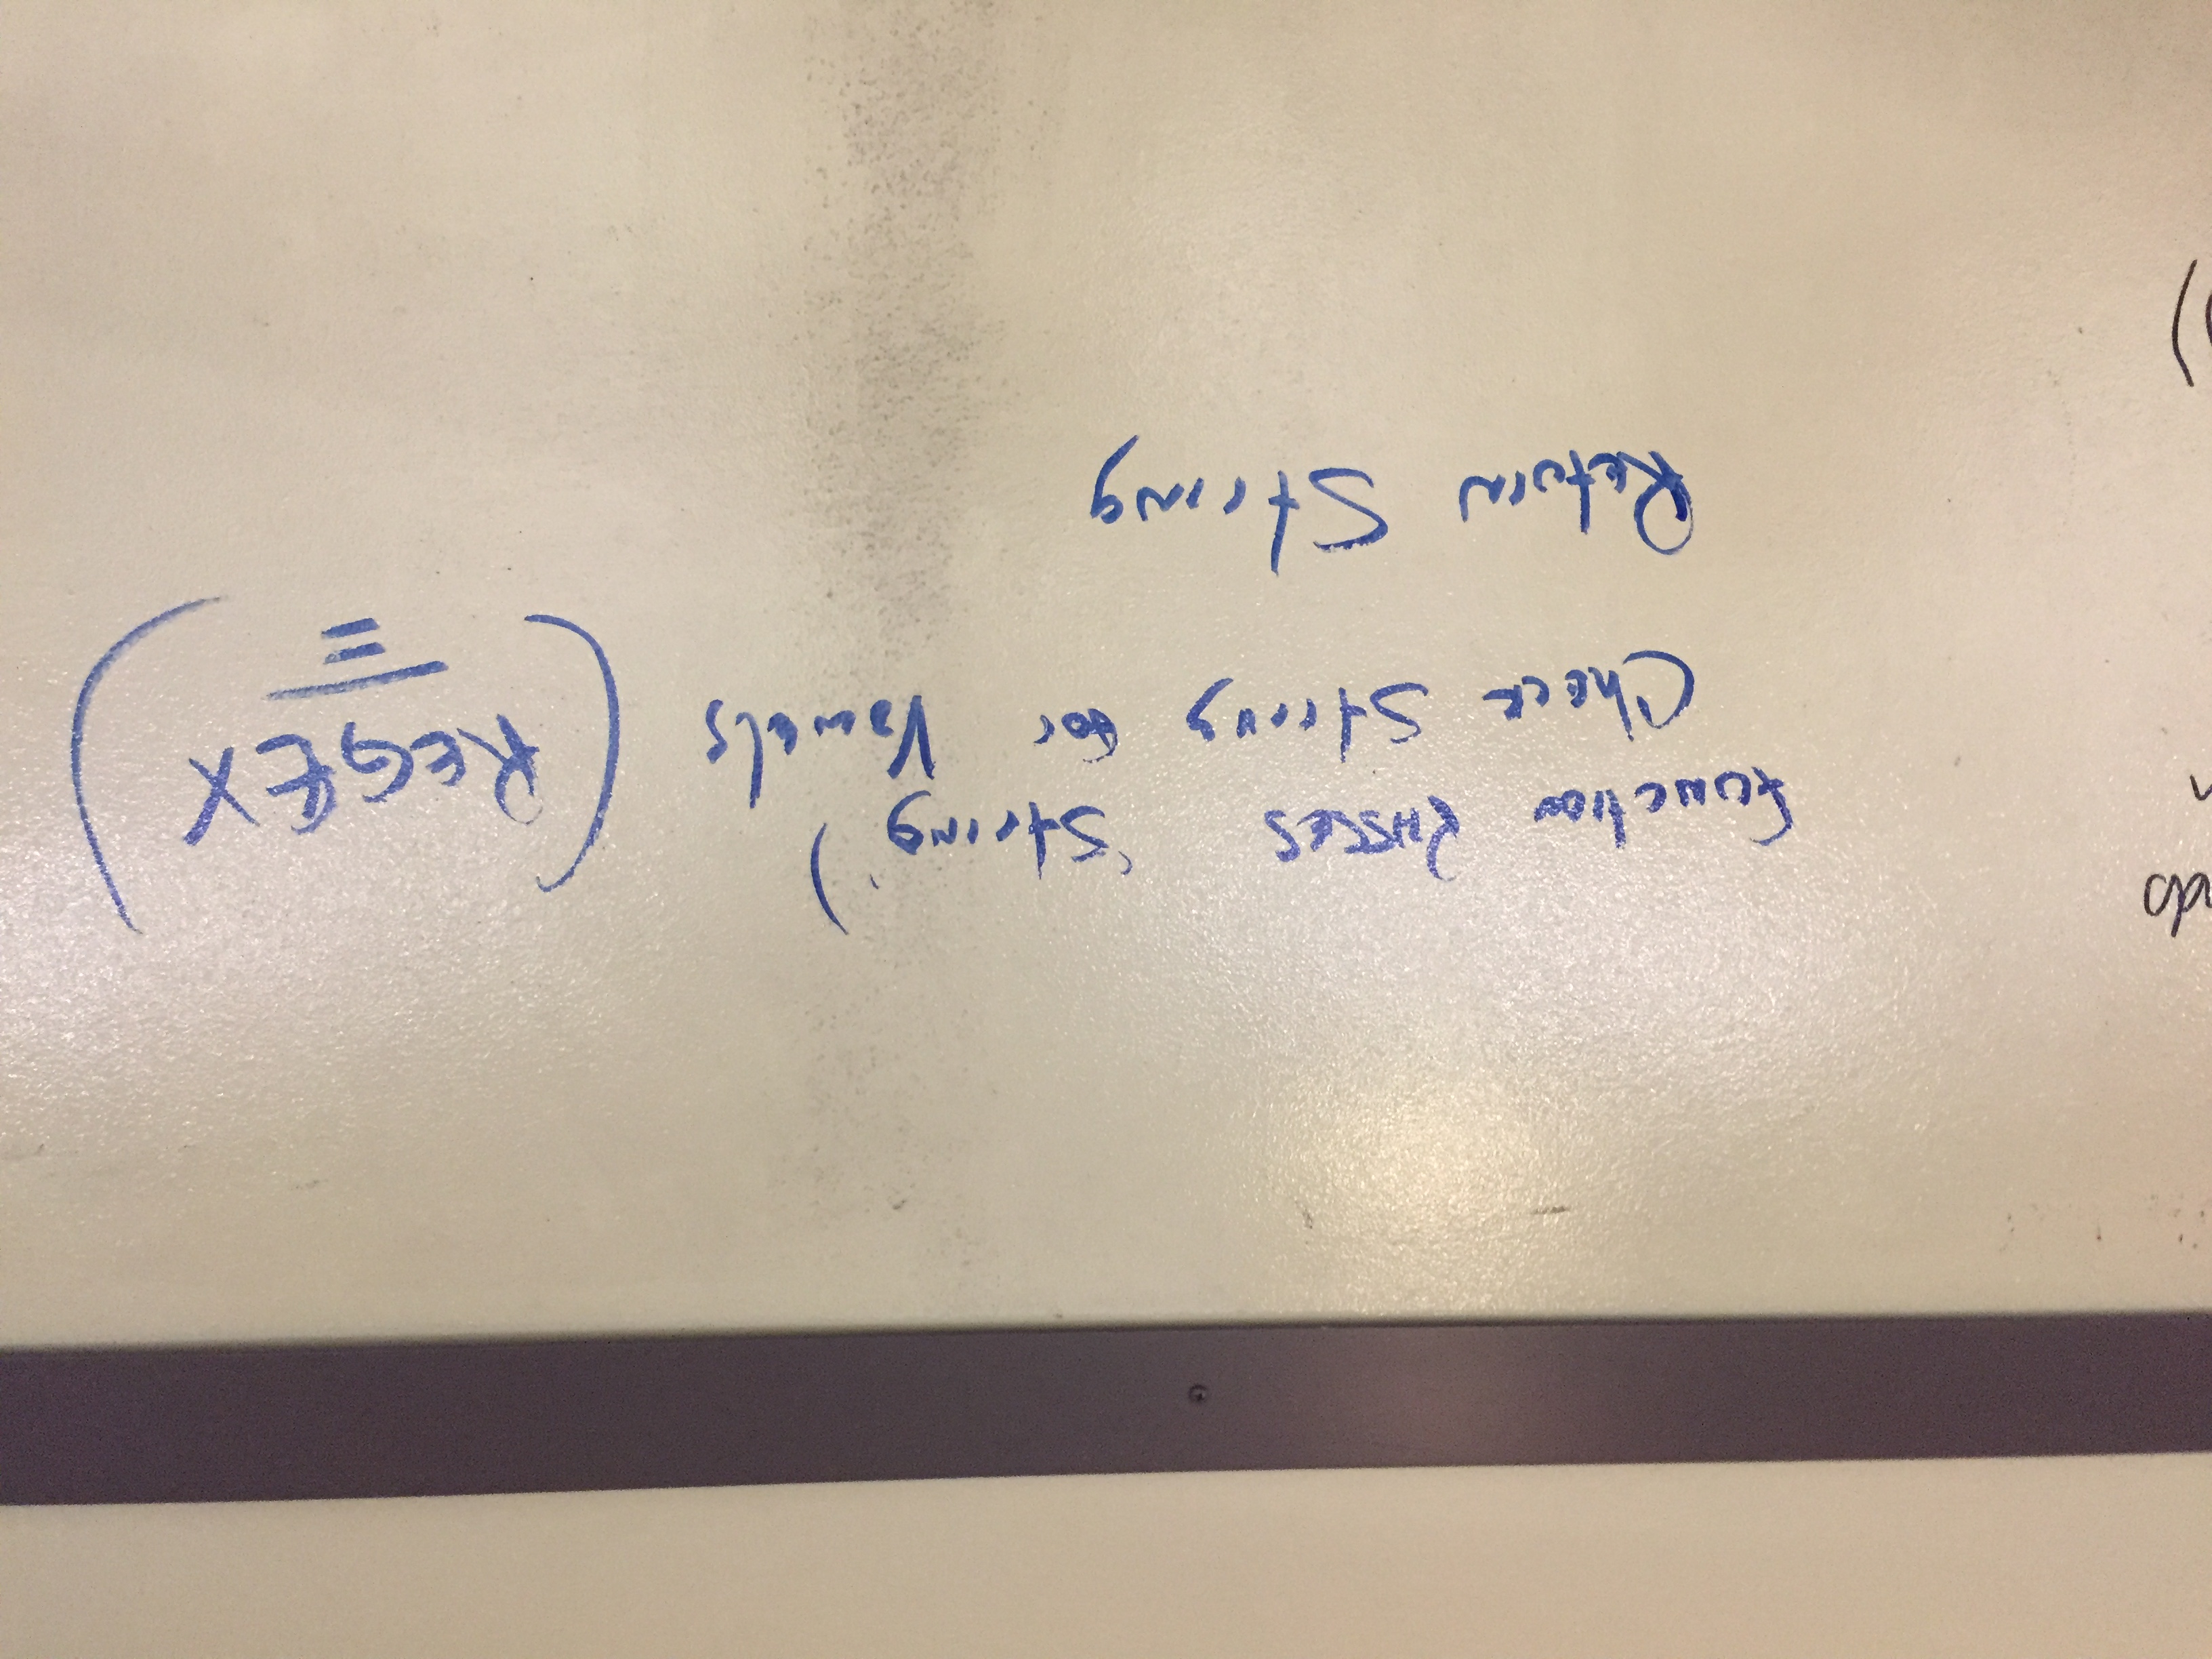 Function Passes 'String')
Check String for Vowels (REGEX)
Return String
)